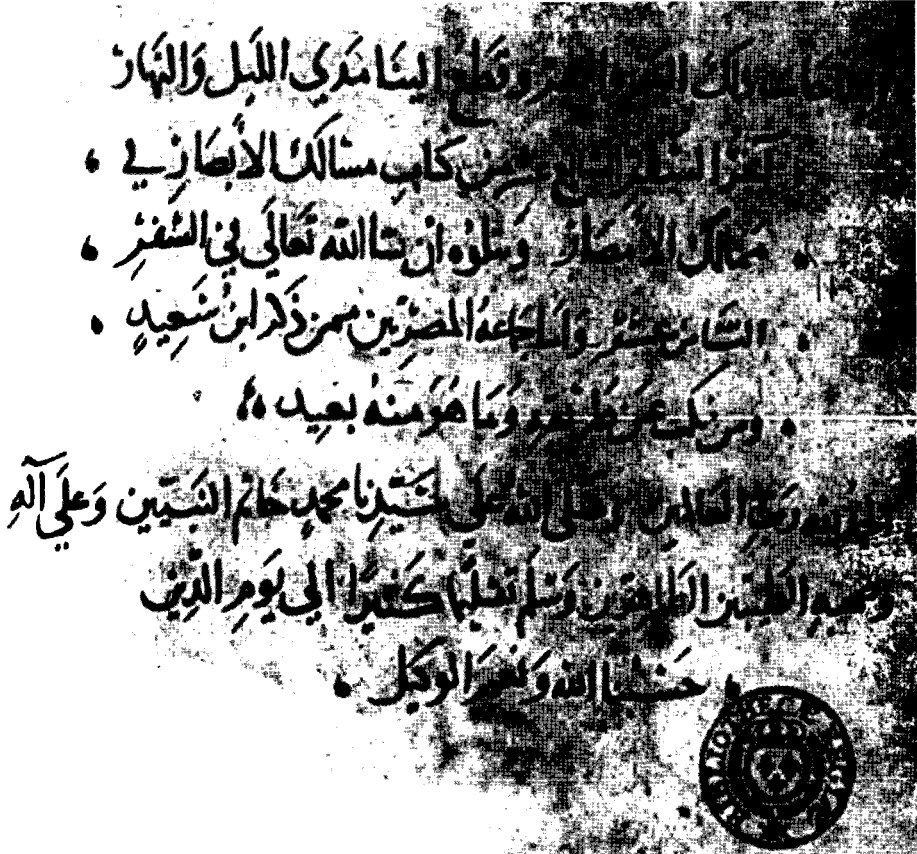 ذلك البحر وقطع الينا مدي الليل والنهار
آخر السفر السابع عشر من كتاب مسالك الأبصار في
ممالك الأمصار وسلوه ان شا الله تعالى في السفر
الثامن عشر وأما جماعة المصريين ممن ذكر ابن سعيد
ومن نكب عن طريقه وما هو منه ببعيد
الحمد لله رب العالمين وصلى الله على سيدنا محمد خاتم النبيين وعلى آله
وصحبه الطيبين الطاهرين وسلم تسليما كثيرا الى يوم الدين
حسبنا الله ونعم الوكيل
BIBLIOTHECÆ REGIÆ